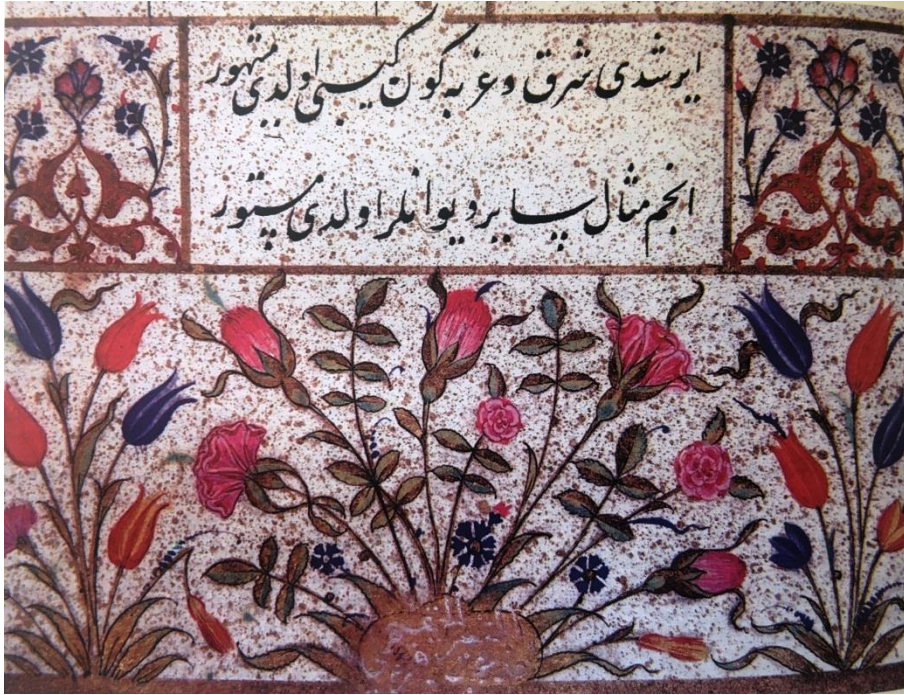 ایرشدی شرق و غربه گون گیبی اولدی مشهور
انجم مثال سایر دیوانلر اولدی مستور